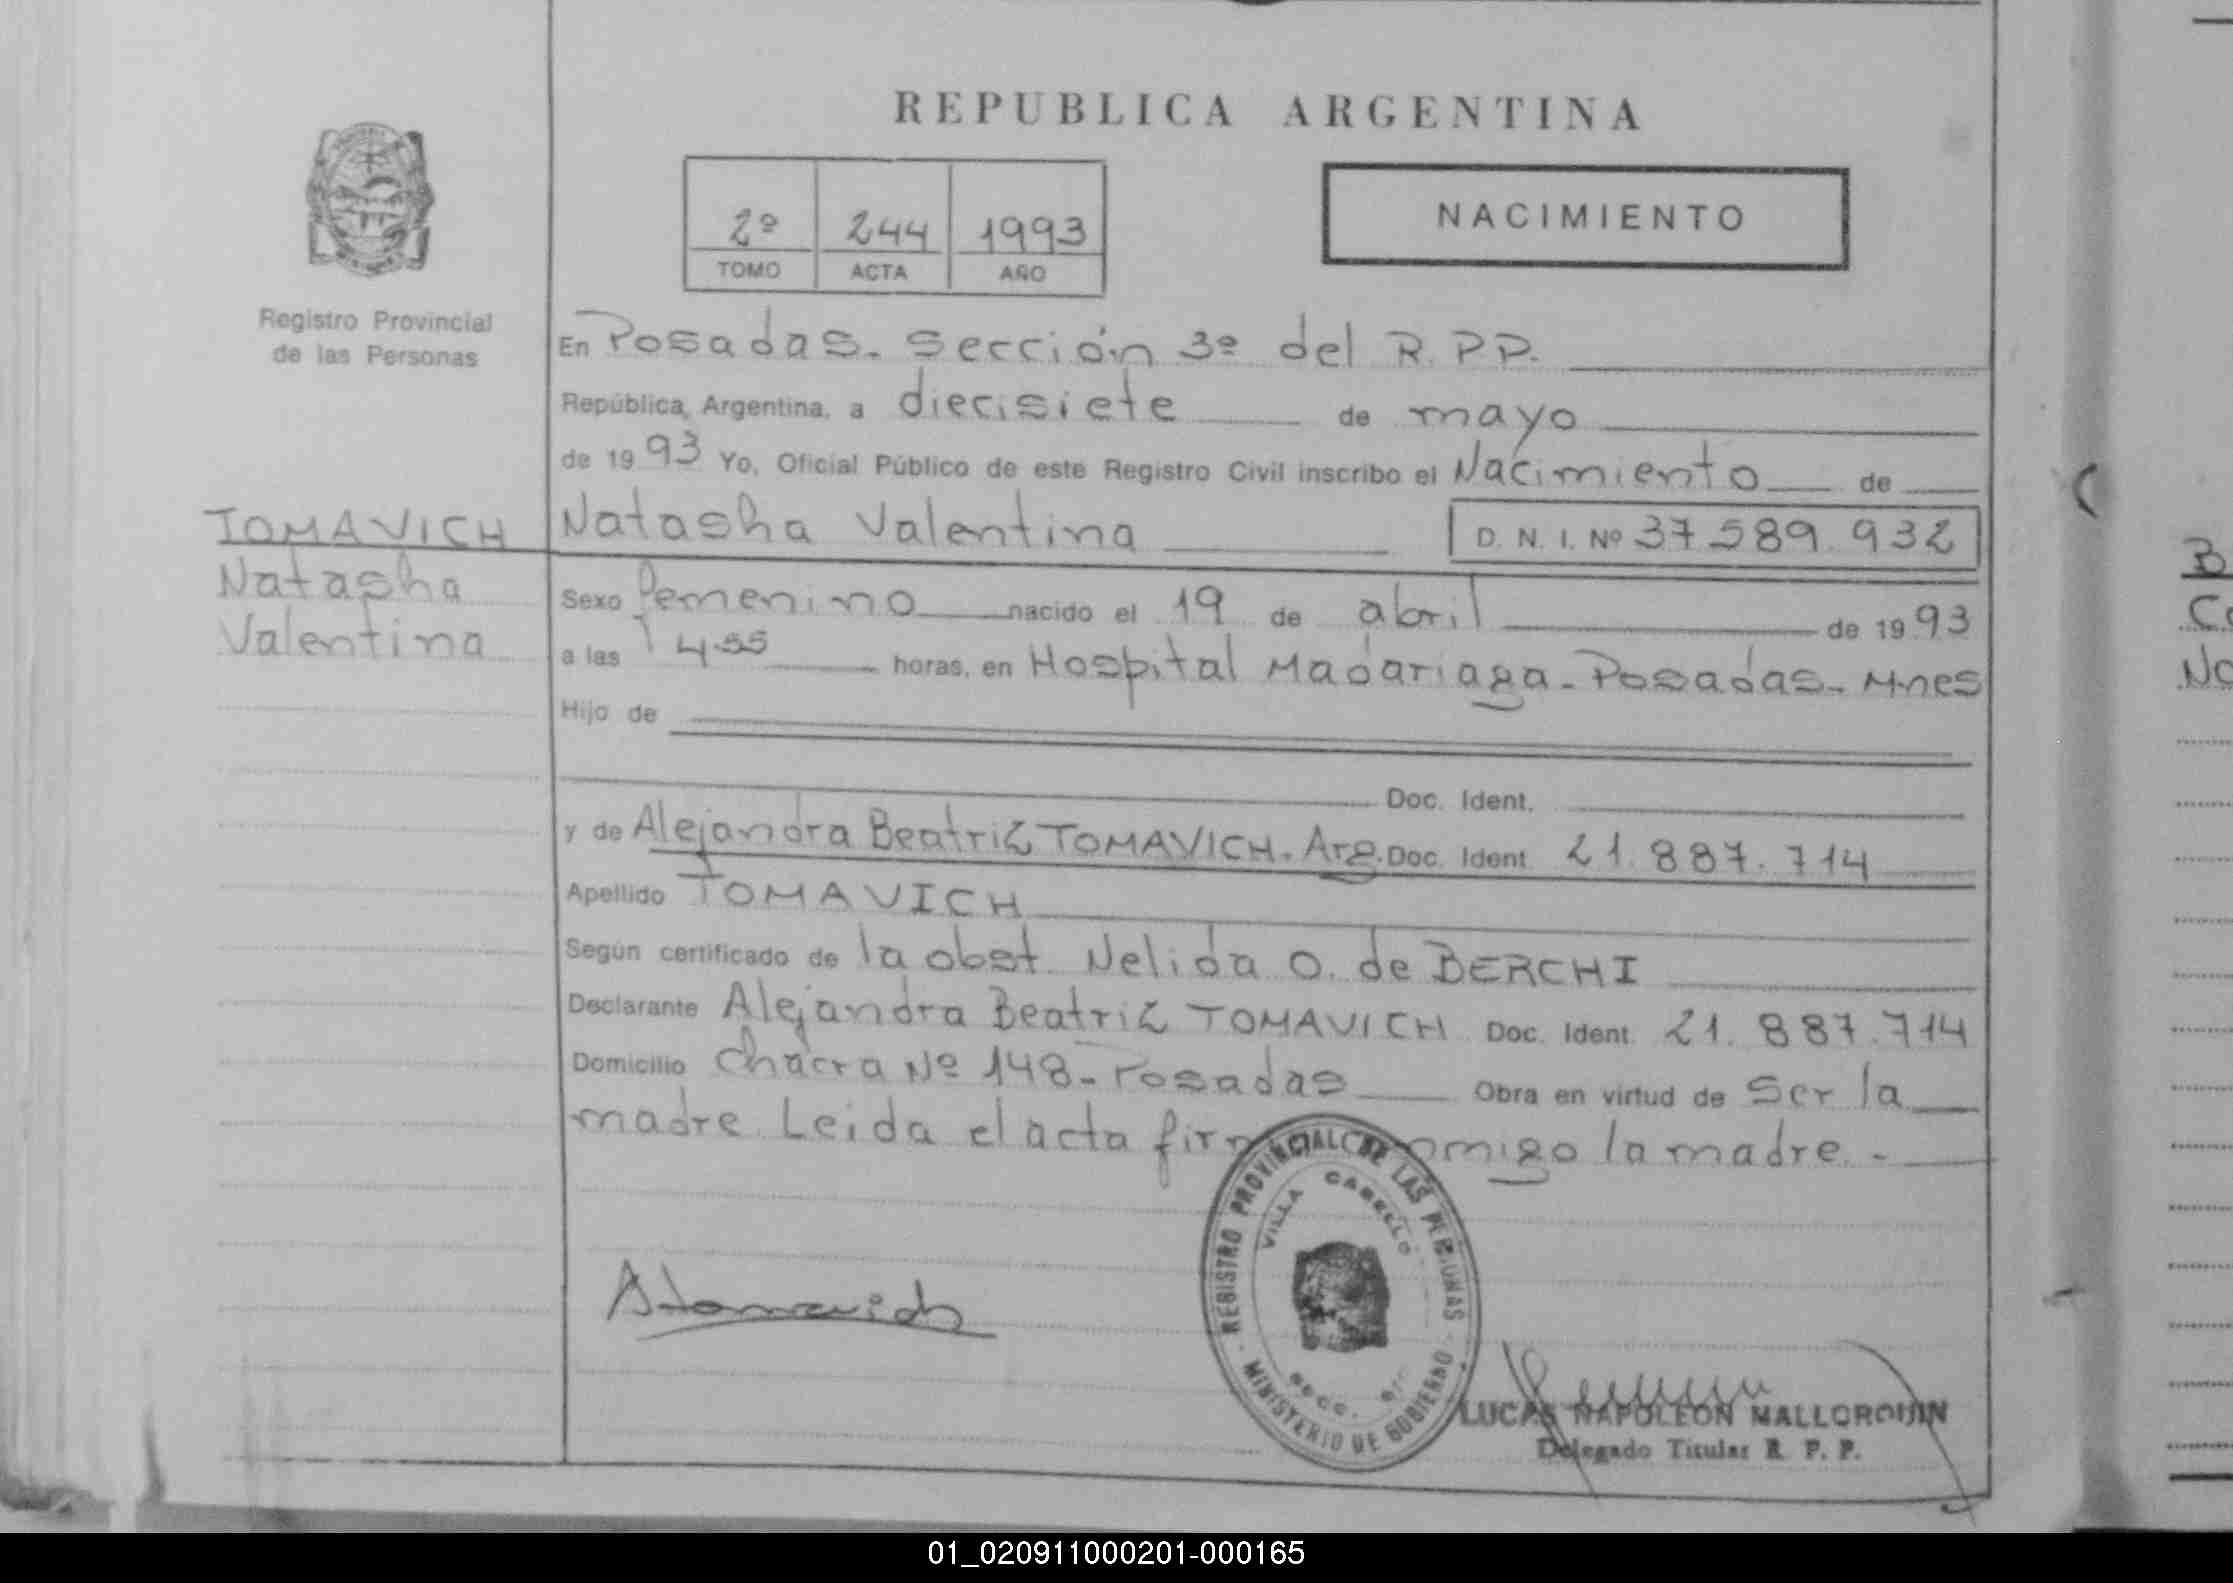 REPUBLICA ARGENTINA
2º 244 1993
TOMO ACTA AÑO
NACIMIENTO
Registro Provincial
de las Personas
En Posadas. Sección 3º del R.P.P.
República Argentina, a diecisiete de mayo
de 1993 Yo, Oficial Público de este Registro Civil inscribo el Nacimiento de
TOMAVICH
Natasha
Valentina
Natasha Valentina D.N.I. Nº 37589.932
Sexo femenino nacido el 19 de abril de 1993
a las 4.55 horas, en Hospital Madariaga - Posadas - Mnes
Hijo de
Doc. Ident.
y de Alejandra Beatriz TOMAVICH. Arg. Doc. Ident. 21.887.714
Apellido TOMAVICH
Según certificado de la obst. Nelida O. de BERCHI
Declarante Alejandra Beatriz TOMAVICH Doc. Ident. 21.887.714
Domicilio Chacra Nº 148 - Posadas Obra en virtud de ser la
madre. Leida el acta la madre. -
REGISTRO PROVINCIAL DE LAS PERSONAS
VILLA CABELLO
MINISTERIO DE GOBIERNO
ATomavich
LUCAS NAPOLEON MALLORQUIN
Delegado Titular R. P. P.
01_020911000201-000165